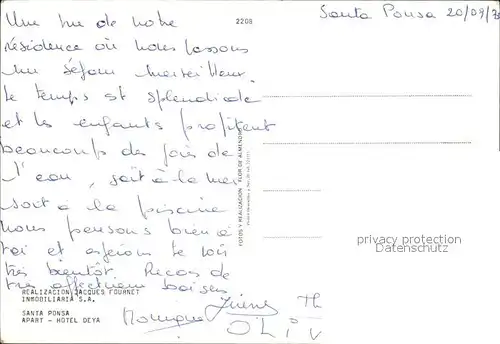 Santa Ponsa 20/09/7
2208
Une vue de notre
résidence où nous passons
un séjour merveilleux.
Le temps est splendide
et les enfants profitent
beaucoup des joies de
l'eau, soit à la mer
soit à la piscine
nous pensons bien à
toi et espérons te voir
très bientôt. Recois de
très affectueux baisers
FOTOS Y REALIZACION: FLOR DE ALMENDRO
privacy protection
REALIZACION JACQUES FOURNET
INMOBILIARIA S.A.
SANTA PONSA
APART - HOTEL DEYA
Monique